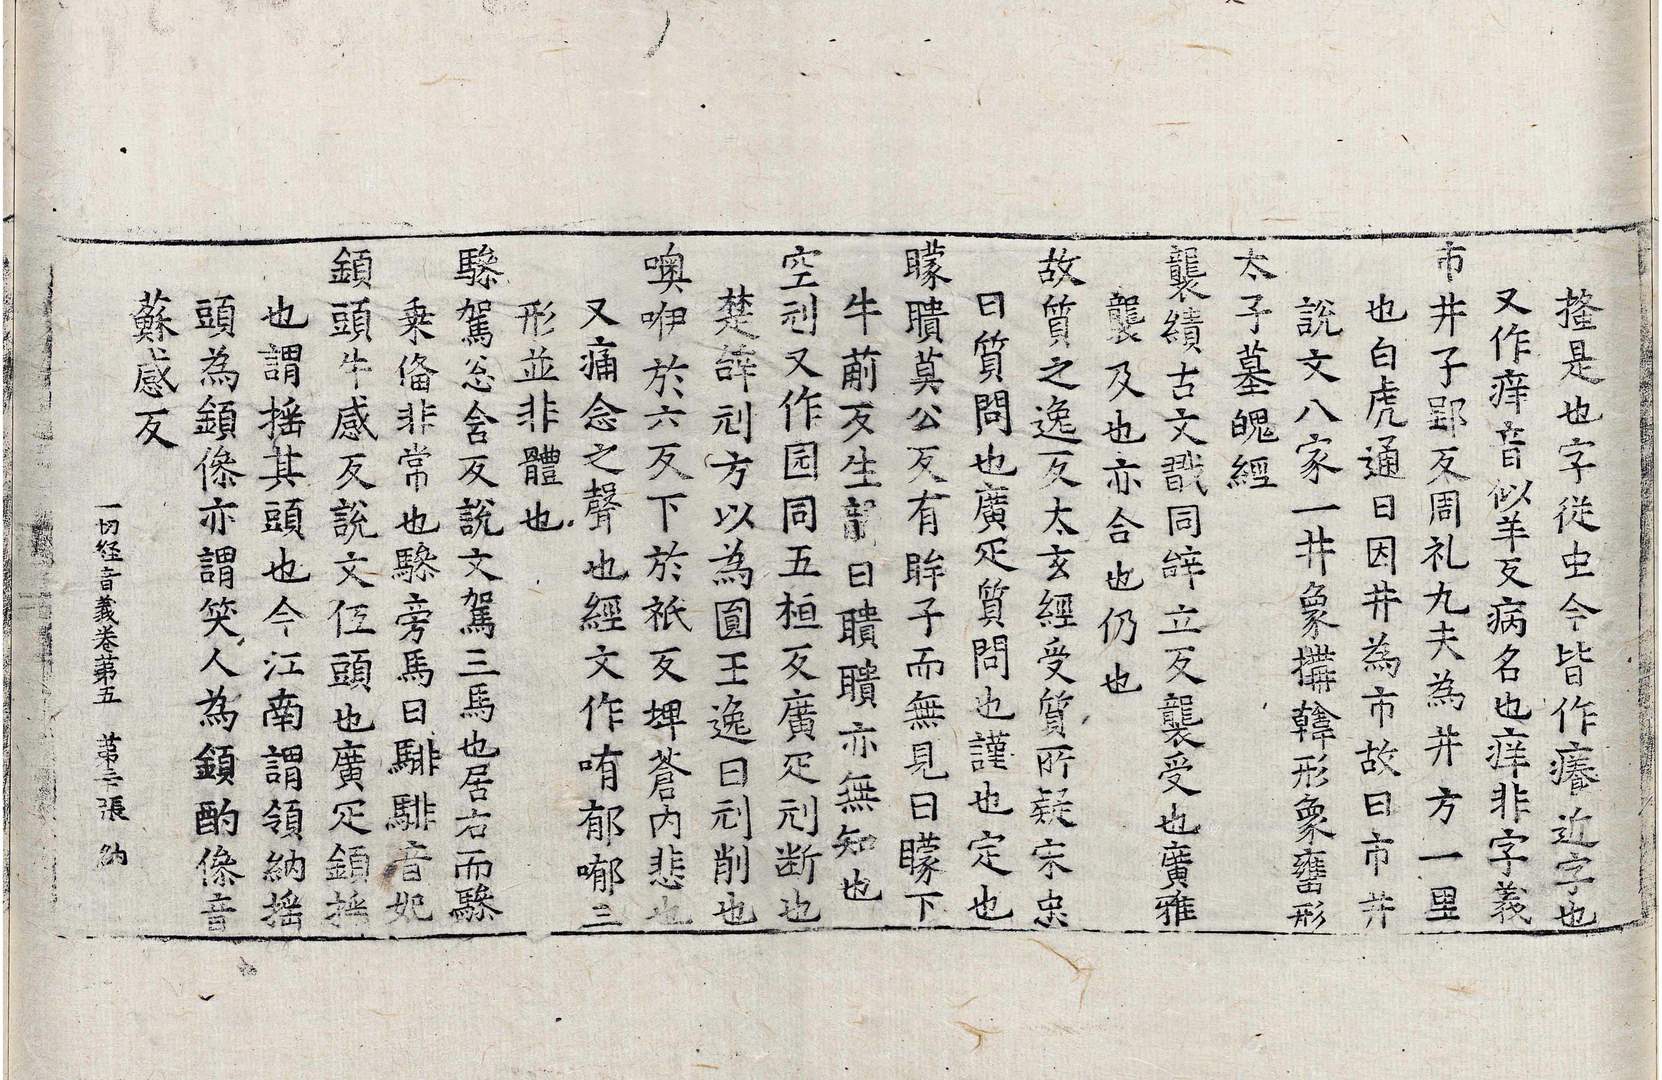 搔是也字從虫今皆作癢近字也
又作痒音似羊反病名也痒非字義
市井子郢反周礼九夫為井方一里
也白虎通曰因井為市故曰市井
說文八家一井象構韓形象罋形
太子墓魄經
襲績古文戩同辝立反襲受也廣雅
襲及也亦合也仍也
故質之逸反太玄經受質所疑宋忠
曰質問也廣疋質問也謹也定也
矇瞶莫公反有眸子而無見曰矇下
牛前反生聾曰聵聵亦無知也
空刓又作园同五桓反廣疋刓断也
楚辝刓方以為圓王逸曰刓削也
噢咿於六反下於祇反埤蒼内悲也
又痛念之聲也經文作哊郁喐三
形並非體也
驂駕忩含反說文駕三馬也居右而驂
乗俻非常也驂旁馬曰騑騑音妃
顉頭牛感反說文伍頭也廣疋顉揺
也謂揺其頭也今江南謂領納揺
頭為顉傪亦謂笑人為顉酌傪音
蘇感反
一切経音義卷苐五 苐二張 納